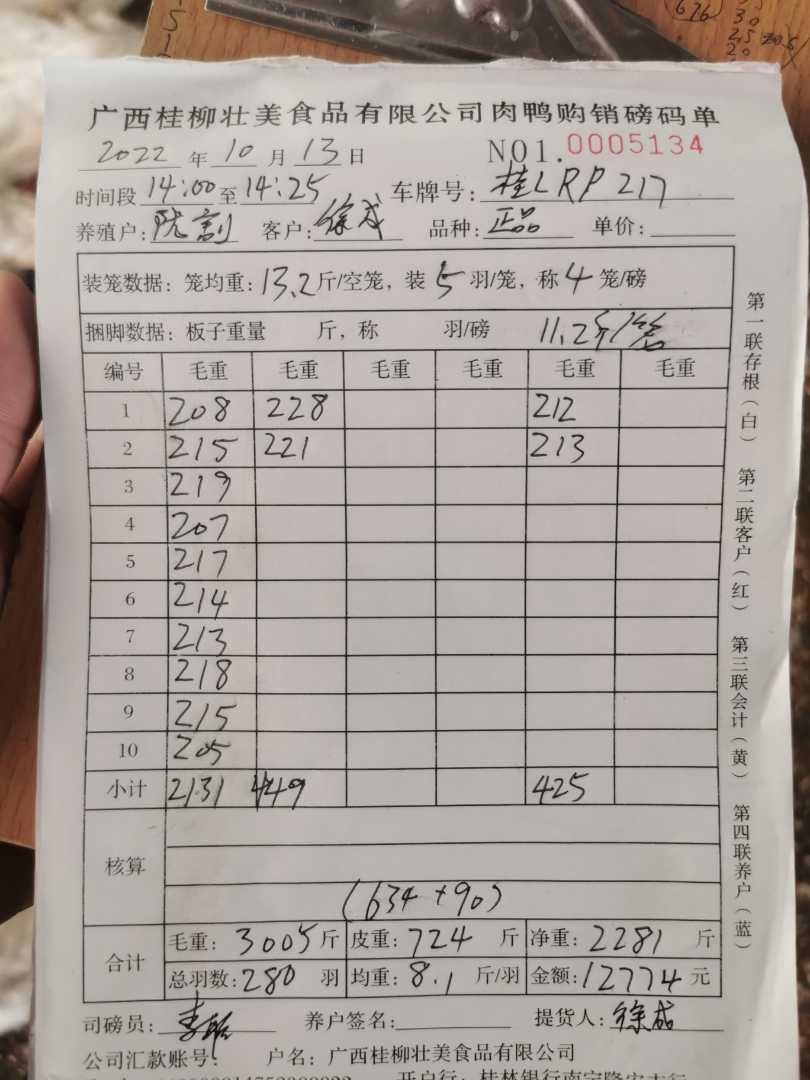 广西桂柳壮美食品有限公司肉鸭购销磅码单
2022 年 10 月 13 日 NO1. 0005134
时间段 14:00 至 14:25 车牌号: 桂LRP217
养殖户: 客户: 徐成 品种: 正品 单价:
装笼数据: 笼均重: 13.2 斤/空笼, 装 5 羽/笼, 称 4 笼/磅
捆脚数据: 板子重量 斤, 称 羽/磅 11.2斤/笼
编号 毛重 毛重 毛重 毛重 毛重 毛重
1 208 228 212
2 215 221 213
3 219
4 207
5 217
6 214
7 213
8 218
9 215
10 205
小计 2131 449 425
核算
(634+90)
合计
毛重: 3005 斤 皮重: 724 斤 净重: 2281 斤
总羽数: 280 羽 均重: 8.1 斤/羽 金额: 12774 元
司磅员: 养户签名: 提货人: 徐成
公司汇款账号: 户名: 广西桂柳壮美食品有限公司
第一联存根(白) 第二联客户(红) 第三联会计(黄) 第四联养户(蓝)